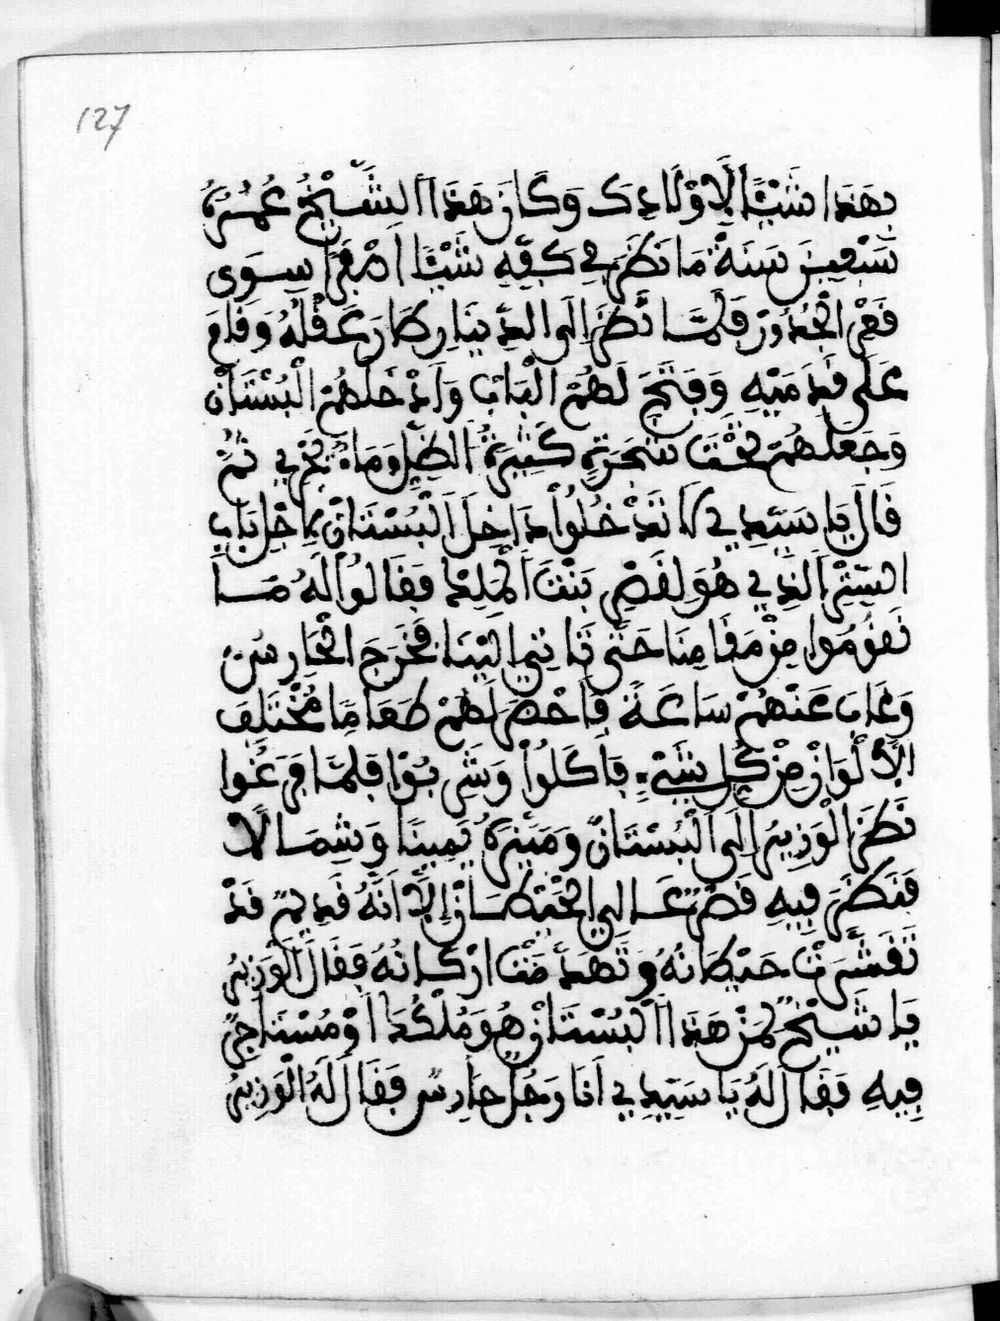 127
بهَذا شَيْئًا لِأَوْلَادِكَ وَكَانَ هَذَا الشَّيْخُ عُمْرُهُ
تسْعِينَ سَنَةً مَا نَظَرَ فِي كَفِّهِ شَيْئًا اصْفَرَ سِوَى
فَلَمَّا نَظَرَ إِلَى الدِّينَارِ طَارَ عَقْلُهُ وَقَامَ
عَلَى قَدَمَيْهِ وَفَتَحَ لَهُمْ الْبَابَ وَأَدْخَلَهُمْ الْبُسْتَانْ
وَجَعَلَهُمْ تَحْتَ شَجَرَةٍ كَثِيرَةُ الظِّلِ وَمَاءٌ يَجْرِي ثُمَّ
قَالَ يَا سَيِّدِي لَا تَدْخُلُوا دَاخِلَ الْبُسْتَانْ دَاخِل بَابِ
السِّتْرِ الَّذِي هُوَ لقَصْرِ بَنْتَ الْمَلِكِ فَقَالُوا لَهُ مَا
نَقُومُوا مِنْ مَقَامِنَا حَتَّى تَاتِي الَيْنَا فَخَرَجَ الْحَارِسُ
وَغَابَ عَنْهُمْ سَاعَةً فَأَحْضَرَ لَهُمْ طَعَامًا مُخْتَلِفَ
الْأَلْوَانْ مِنْ كُلِ شَيْءٍ فَأَكَلُوا وَشَرِبُوا فَلَمَّا فَرَغُوا
نَظَرَ الْوَزِيرُ إِلَى الْبُسْتَانْ وَمَيَّزَهُ يَمِينًا وَشِمَالًا
فَنَظَرَ فِيهِ قَصْرً عَالِي الْحِيطَانْ إِلَّا أَنَّهُ قَدِيمٌ قَدْ
تَقَشَّرَتْ حَيْطَانُهُ وَتَهَدَّمَتْ ارْكَانُهُ فَقَالَ الْوَزِيرُ
يَا شَيْخُ لِمَنْ هَذَا الْبُسْتَانْ هُوَ مُلْكُكَ أَوْ مُسْتَاجِرٌ
فِيهِ فَقَالَ لَهُ يَا سَيِّدِي أَنَا رَجُلٌ حَارِسٌ فَقَالَ لَهُ الْوَزِيرُ